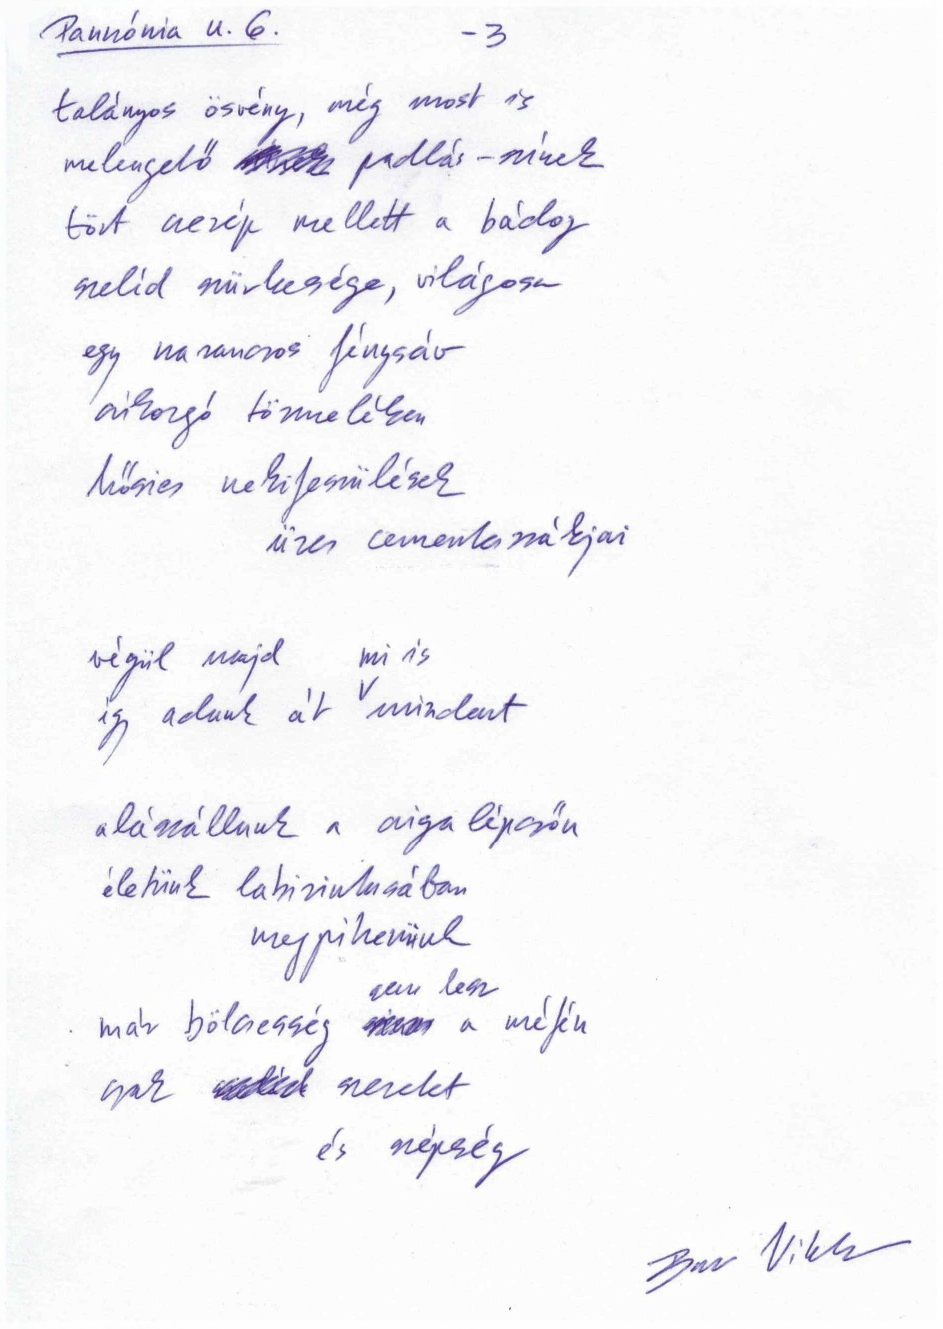 Pannónia u. 6. -3
talányos ösvény, még most is
melengető padlás-színek
tört cserép mellett a bádog
szelíd szürkesége, világosa
egy narancsos fénysáv
csikorgó törmeléken
hősies nekifeszülések
üres cementeszsákjai
végül majd mi is
így adunk át mindent
alászállunk a csigalépcsőn
életünk labirintusában
megpihenünk
már bölcsesség sem lesz a mélyén
csak szeretet
és szépség